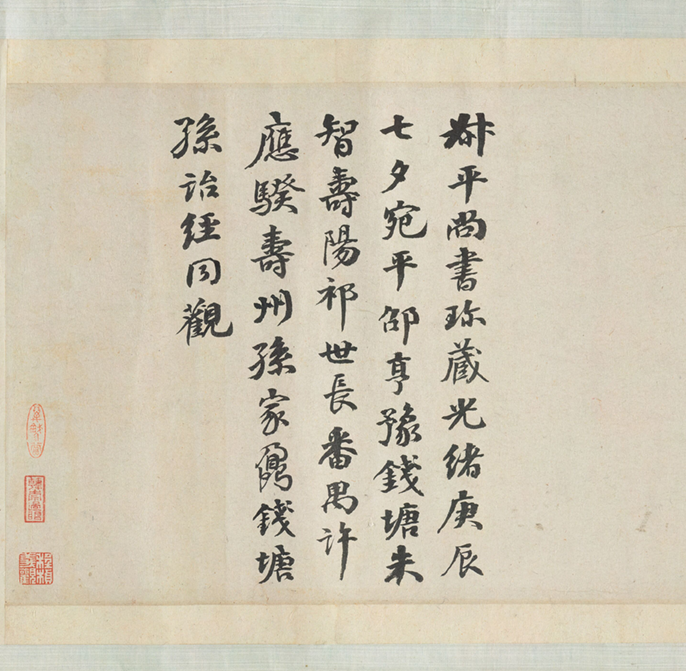 叔平尚書珎藏光緒庚辰
七夕宛平邵亨豫錢塘朱
智壽陽祁世長番禺許
應騤壽州孫家鼐錢塘
孫詒經同觀